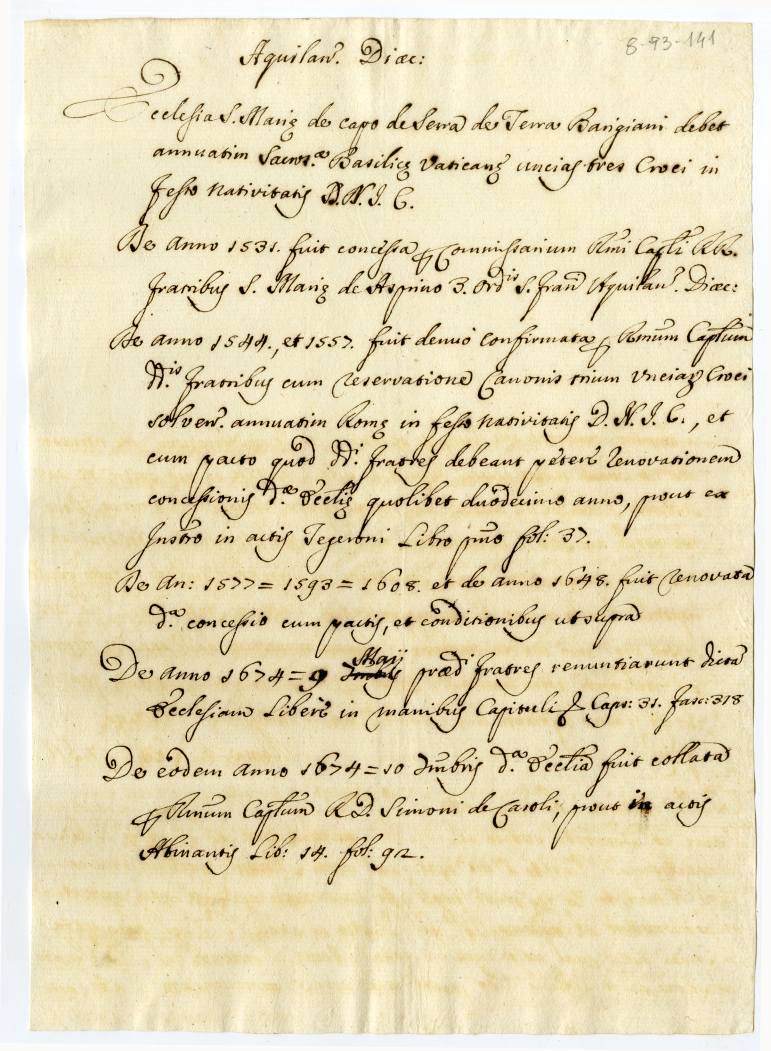 8-93-141
Aquilan. Diœc:
Ecclesia S. Marię de capo de Serra de Terra Barigiani debet
annuatim Sacros.æ Basilicę Vaticanę uncias tres Croci in
festo Nativitatis D. N. I. C.
De Anno 1531. fuit concessa ꝑ Commissarium Rmi Capli RR.
fratribus S. Marię de Aspino 3. Ordis S. Fran Aquilan. Diœc:
De anno 1544., et 1557. fuit denuò confirmata ꝑ Rmum Caplum
dd.is fratribus cum reservatione Canonis trium Unciarum Croci
solven. annuatim Romę in festo Nativitatis D. N. I. C., et
cum pacto quod dd.i fratres debeant petere renovationem
concessionis d.æ Eccleię quolibet duodecimo anno, prout ex
Instro in actis Tegeroni Libro pmo fol: 37.
De An: 1577 = 1593 = 1608. et de anno 1648. fuit renovata
d.a concessio cum pactis, et conditionibus ut supra
De anno 1674 = 9 Maij præd.i fratres renuntiarunt dictã
Ecclesiam Liberè in manibus Capituli Caps: 31. fasc: 318
De eodem anno 1674 = 10 Xmbris d.a Ecclia fuit collata
ꝑ Rmum Caplum R. D. Simoni de Caroli, prout in actis
Abinantis Lib: 14. fol: 92.